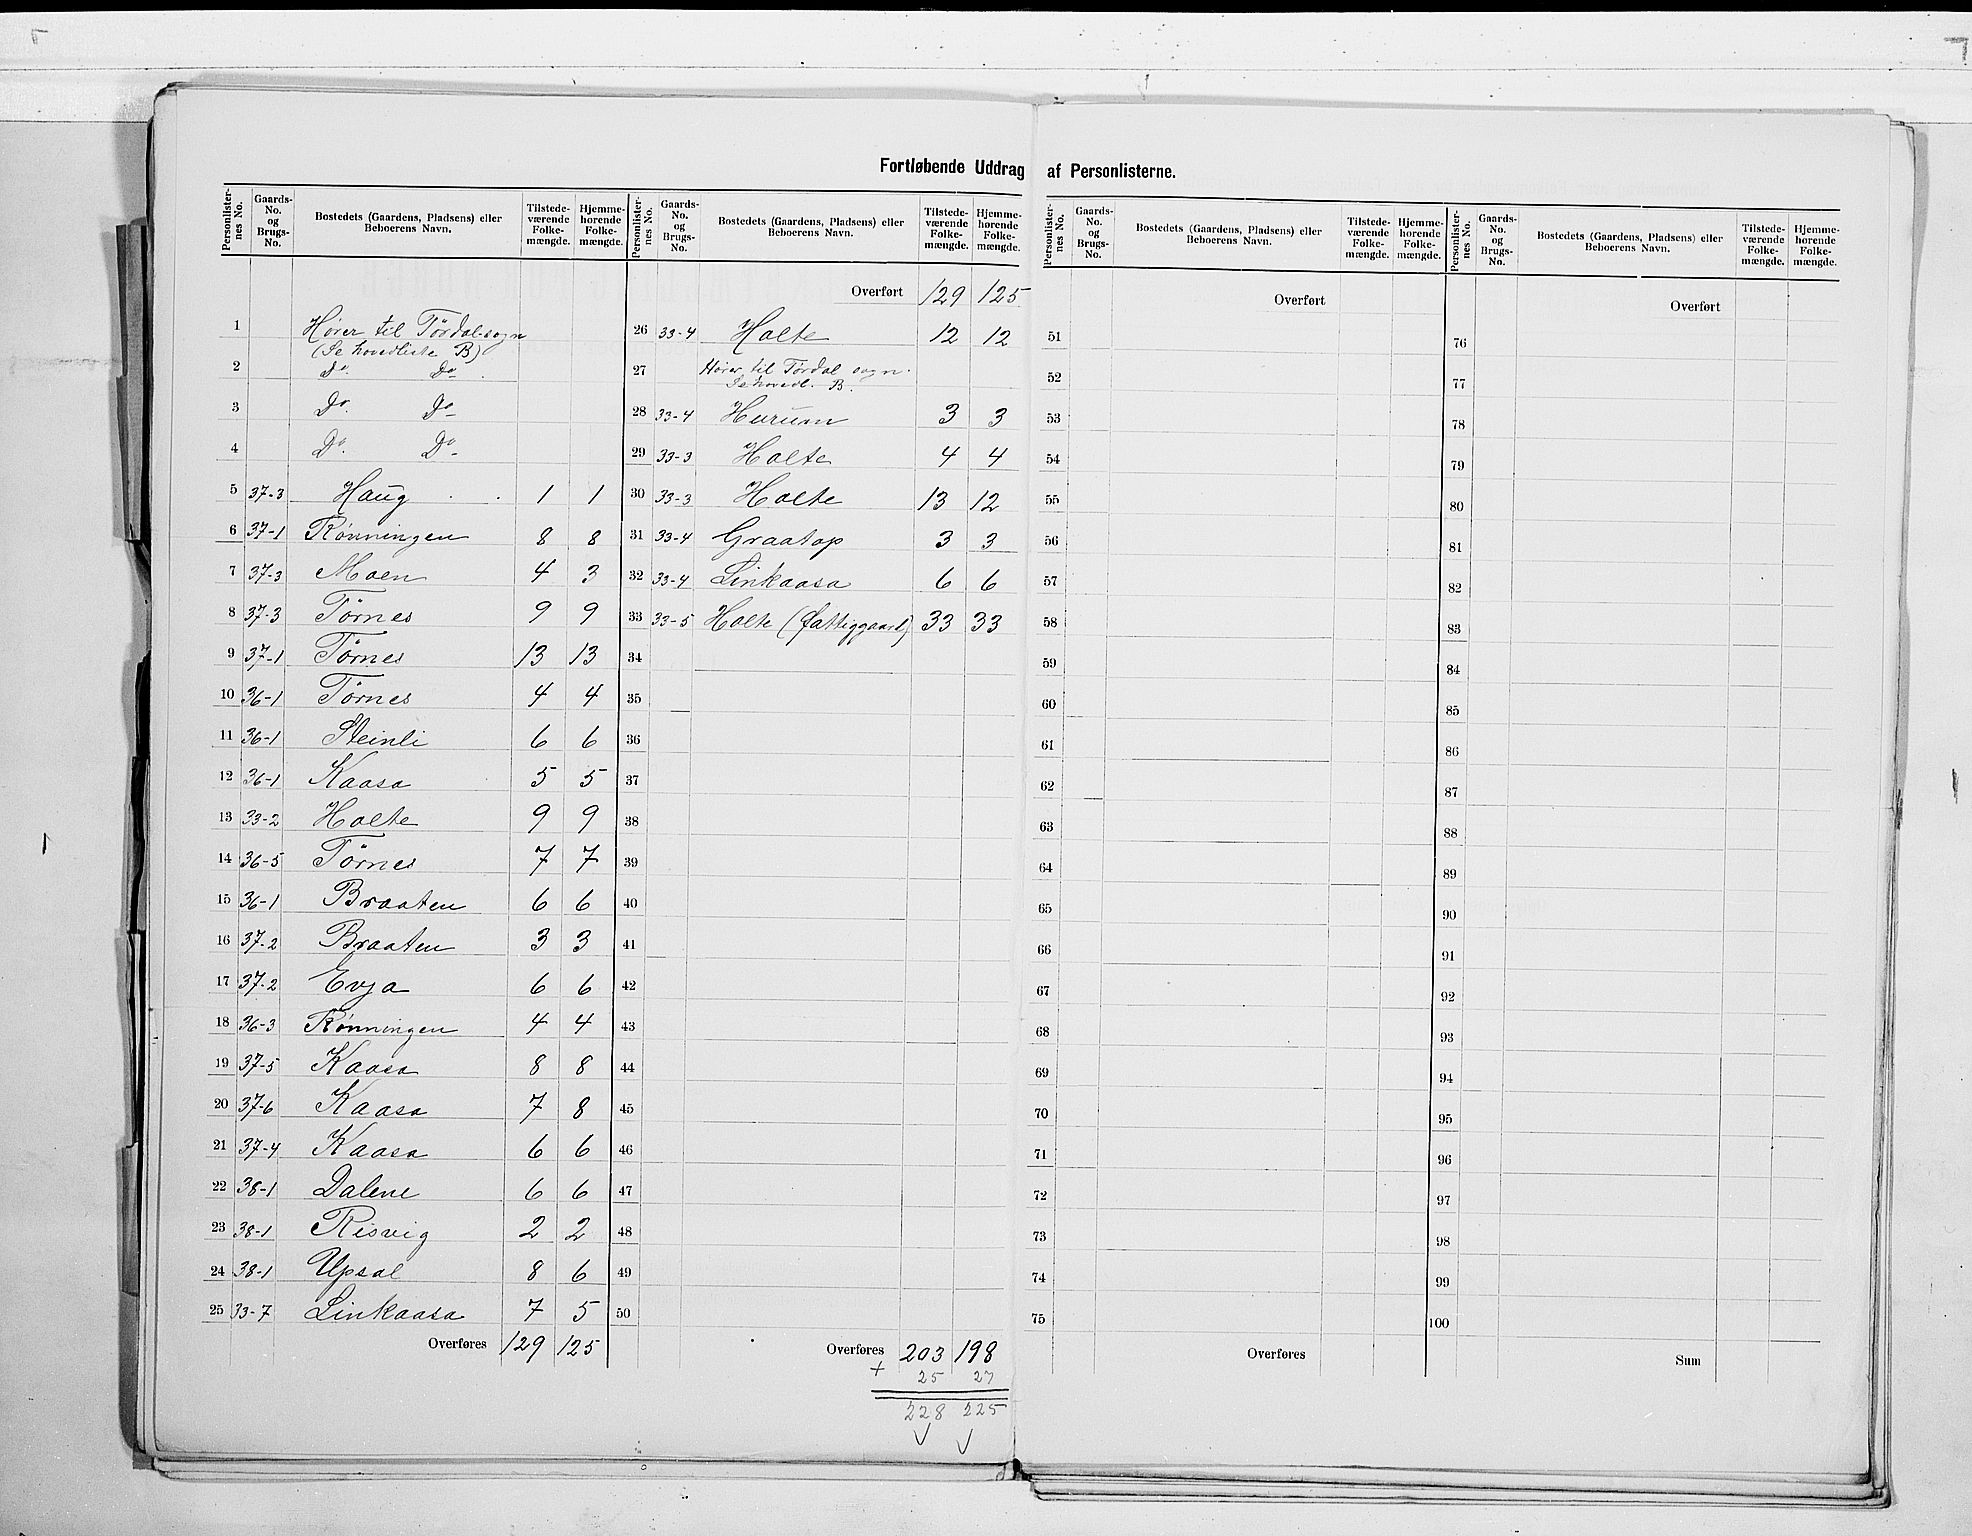 Fortløbende Uddrag af Personlisterne.
Personlisternes No. Gaards-No. og Brugs-No. Bostedets (Gaardens, Pladsens) eller Beboerens Navn. Tilstedeværende Folkemængde. Hjemmehørende Folkemængde.
1 Hører til Tørdal sogn
(Se hovedliste B)
2 Do. Do.
3 Do. Do.
4 Do. Do.
5 37-3 Haug 1 1
6 37-1 Rønningen 8 8
7 37-3 Moen 4 3
8 37-3 Tørnes 9 9
9 37-1 Tørnes 13 13
10 36-1 Tørnes 4 4
11 36-1 Steinli 6 6
12 36-1 Kaasa 5 5
13 33-2 Holte 9 9
14 36-5 Tørnes 7 7
15 36-1 Braaten 6 6
16 37-2 Braaten 3 3
17 37-2 Evja 6 6
18 36-3 Rønningen 4 4
19 37-5 Kaasa 8 8
20 37-6 Kaasa 7 8
21 37-4 Kaasa 6 6
22 38-1 Dalene 6 6
23 38-1 Risvig 2 2
24 38-1 Upsal 8 6
25 33-7 Linkaasa 7 5
Overføres 129 125
Personlisternes No. Gaards-No. og Brugs-No. Bostedets (Gaardens, Pladsens) eller Beboerens Navn. Tilstedeværende Folkemængde. Hjemmehørende Folkemængde.
Overført 129 125
26 33-4 Holte 12 12
27 Hører til Tørdal sogn.
Se hovedl. B.
28 33-4 Hurum 3 3
29 33-3 Holte 4 4
30 33-3 Holte 13 12
31 33-4 Graatop 3 3
32 33-4 Linkaasa 6 6
33 33-5 Holte (Fattiggaard) 33 33
34
35
36
37
38
39
40
41
42
43
44
45
46
47
48
49
50
Overføres 203 198
+ 25 27
228 225
Personlisternes No. Gaards-No. og Brugs-No. Bostedets (Gaardens, Pladsens) eller Beboerens Navn. Tilstedeværende Folkemængde. Hjemmehørende Folkemængde.
Overført
51
52
53
54
55
56
57
58
59
60
61
62
63
64
65
66
67
68
69
70
71
72
73
74
75
Overføres
Personlisternes No. Gaards-No. og Brugs-No. Bostedets (Gaardens, Pladsens) eller Beboerens Navn. Tilstedeværende Folkemængde. Hjemmehørende Folkemængde.
Overført
76
77
78
79
80
81
82
83
84
85
86
87
88
89
90
91
92
93
94
95
96
97
98
99
100
Sum